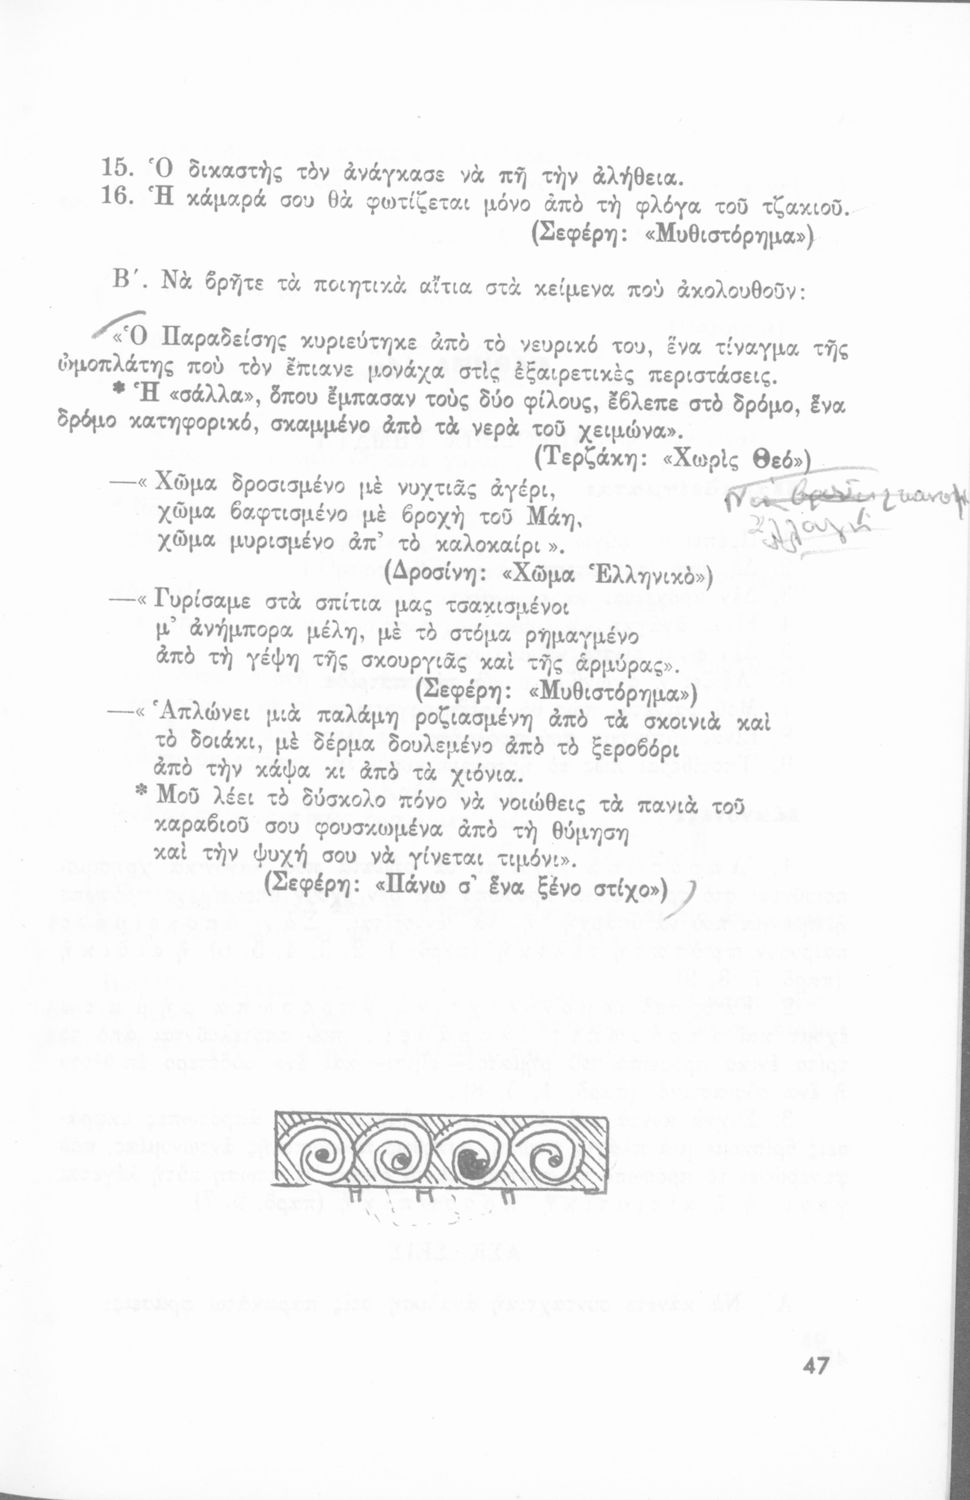 15. Ὁ δικαστὴς τὸν ἀνάγκασε νὰ πῆ τὴν ἀλήθεια.
16. Ἡ κάμαρά σου θὰ φωτίζεται μόνο ἀπὸ τὴ φλόγα τοῦ τζακιοῦ.
(Σεφέρη: «Μυθιστόρημα»)
Β΄. Νὰ βρῆτε τὰ ποιητικὰ αἴτια στὰ κείμενα ποὺ ἀκολουθοῦν:
«Ὁ Παραδείσης κυριεύτηκε ἀπὸ τὸ νευρικό του, ἕνα τίναγμα τῆς
ὠμοπλάτης ποὺ τὸν ἔπιανε μονάχα στὶς ἐξαιρετικὲς περιστάσεις.
* Ἡ «σάλλα», ὅπου ἔμπασαν τοὺς δύο φίλους, ἔβλεπε στὸ δρόμο, ἕνα
δρόμο κατηφορικό, σκαμμένο ἀπὸ τὰ νερὰ τοῦ χειμώνα».
(Τερζάκη: «Χωρὶς Θεό»)
—« Χῶμα δροσισμένο μὲ νυχτιᾶς ἀγέρι,
χῶμα βαφτισμένο μὲ βροχὴ τοῦ Μάη,
χῶμα μυρισμένο ἀπ' τὸ καλοκαίρι ».
(Δροσίνη: «Χῶμα Ἑλληνικὸ»)
—« Γυρίσαμε στὰ σπίτια μας τσακισμένοι
μ' ἀνήμπορα μέλη, μὲ τὸ στόμα ρημαγμένο
ἀπὸ τὴ γέψη τῆς σκουργιᾶς καὶ τῆς ἁρμύρας».
(Σεφέρη: «Μυθιστόρημα»)
—« Ἁπλώνει μιὰ παλάμη ροζιασμένη ἀπὸ τὰ σκοινιὰ καὶ
τὸ δοιάκι, μὲ δέρμα δουλεμένο ἀπὸ τὸ ξεροβόρι
ἀπὸ τὴν κάψα κι ἀπὸ τὰ χιόνια.
* Μοῦ λέει τὸ δύσκολο πόνο νὰ νοιώθεις τὰ πανιὰ τοῦ
καραβιοῦ σου φουσκωμένα ἀπὸ τὴ θύμηση
καὶ τὴν ψυχή σου νὰ γίνεται τιμόνι».
(Σεφέρη: «Πάνω σ' ἕνα ξένο στίχο»)
47